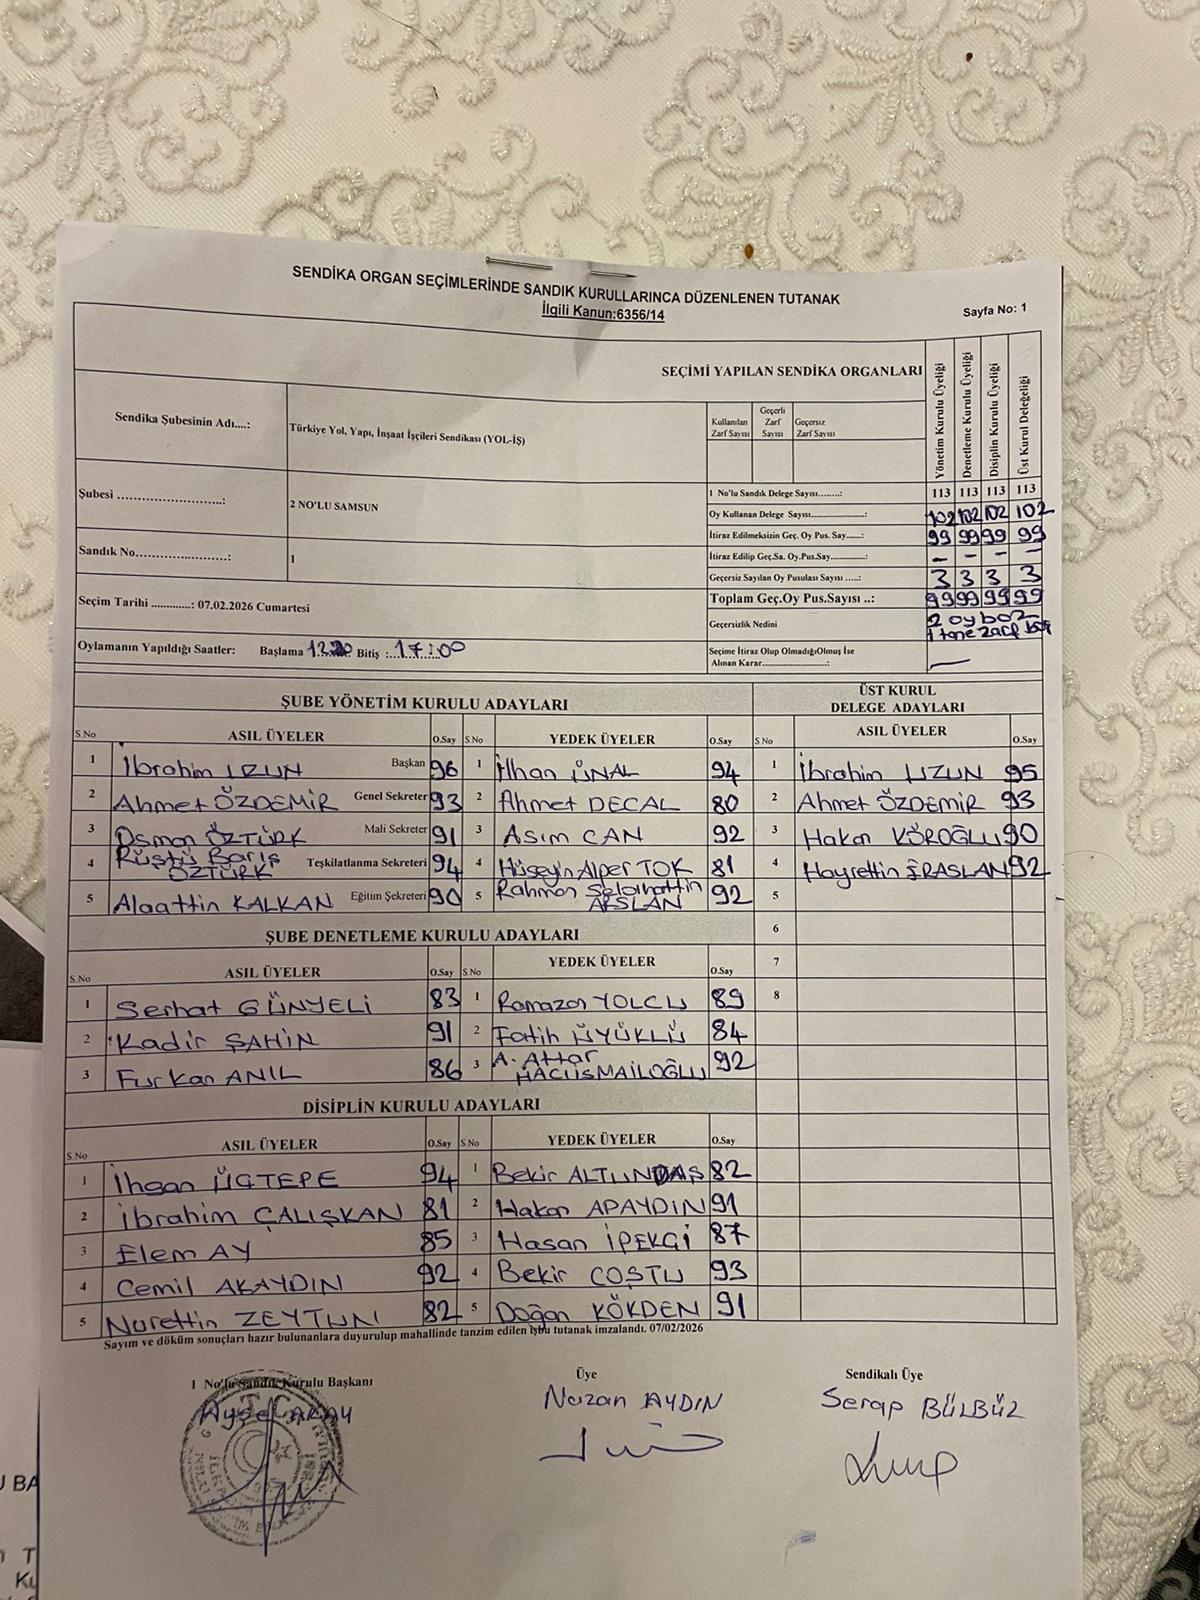 SENDİKA ORGAN SEÇİMLERİNDE SANDIK KURULLARINCA DÜZENLENEN TUTANAK
İlgili Kanun:6356/14
Sayfa No: 1
SEÇİMİ YAPILAN SENDİKA ORGANLARI
Yönetim Kurulu Üyeliği
Denetleme Kurulu Üyeliği
Disiplin Kurulu Üyeliği
Üst Kurul Delegeliği
Sendika Şubesinin Adı....: Türkiye Yol, Yapı, İnşaat İşçileri Sendikası (YOL-İŞ)
Kullanılan Zarf Sayısı
Geçerli Zarf Sayısı
Geçersiz Zarf Sayısı
Şubesi ........................: 2 NO'LU SAMSUN
Sandık No.....................: 1
Seçim Tarihi ............: 07.02.2026 Cumartesi
Oylamanın Yapıldığı Saatler: Başlama Bitiş : 17:00
1 No'lu Sandık Delege Sayısı........: 113 113 113 113
Oy Kullanan Delege Sayısı....................: 102 102 102 102
İtiraz Edilmeksizin Geç. Oy Pus. Say......: 99 99 99 99
İtiraz Edilip Geç.Sa. Oy.Pus.Say..............: - - - -
Geçersiz Sayılan Oy Pusulası Sayısı .....: 3 3 3 3
Toplam Geç.Oy Pus.Sayısı ..: 99 99 99 99
Geçersizlik Nedini 2 oy boz
1 tane zarf boş
Seçime İtiraz Olup OlmadığıOlmuş İse
Alınan Karar....................: —
ŞUBE YÖNETİM KURULU ADAYLARI
ÜST KURUL
DELEGE ADAYLARI
S.No ASIL ÜYELER O.Say S.No YEDEK ÜYELER O.Say S No ASIL ÜYELER O.Say
1 İbrahim UZUN Başkan 96 1 İlhan ÜNAL 94 1 İbrahim UZUN 95
2 Ahmet ÖZDEMİR Genel Sekreter 93 2 Ahmet DECAL 80 2 Ahmet ÖZDEMİR 93
3 Osman ÖZTÜRK Mali Sekreter 91 3 Asım CAN 92 3 Hakan KÖROĞLU 90
4 Rüştü Barış ÖZTÜRK Teşkilatlanma Sekreteri 94 4 Hüseyin Alper TOK 81 4 Hayrettin ERASLAN 92
5 Alaattin KALKAN Eğitim Şekreteri 90 5 Rahman Selahattin ARSLAN 92 5
6
ŞUBE DENETLEME KURULU ADAYLARI
7
S.No ASIL ÜYELER O.Say S.No YEDEK ÜYELER O.Say
8
1 Serhat GÜNYELİ 83 1 Ramazan YOLCU 89
2 Kadir ŞAHİN 91 2 Fatih ÜYÜKLÜ 84
3 Furkan ANIL 86 3 A. Attar HACIİSMAİLOĞLU 92
DISİPLİN KURULU ADAYLARI
S.No ASIL ÜYELER O.Say S.No YEDEK ÜYELER O.Say
1 İhsan ÜÇTEPE 94 1 Bekir ALTUNDAŞ 82
2 İbrahim ÇALIŞKAN 81 2 Hakan APAYDIN 91
3 Elem AY 85 3 Hasan İPEKÇİ 87
4 Cemil AKAYDIN 92 4 Bekir COŞTU 93
5 Nurettin ZEYTUN 82 5 Doğan KÖKDEN 91
Sayım ve döküm sonuçları hazır bulunanlara duyurulup mahallinde tanzim edilen işbu tutanak imzalandı. 07/02/2026
1 No'lu Sandık Kurulu Başkanı
Aysel AKAY
Üye
Nazan AYDIN
Sendikalı Üye
Serap BÜLBÜL
U BA